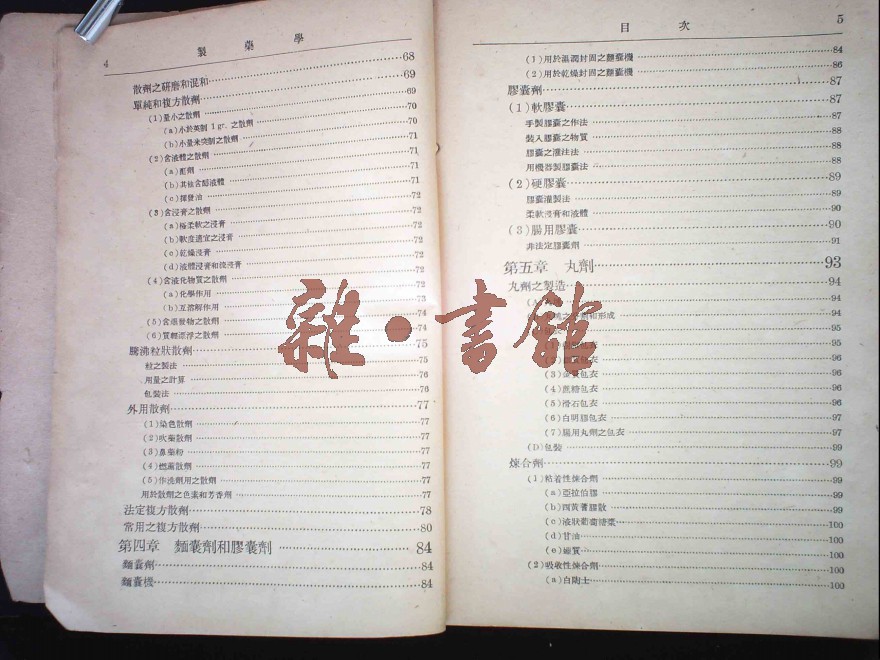 4 製藥學
散劑之研磨和混和 68
單純和複方散劑 69
(1)量小之散劑 69
(a)小於英制 1 gr. 之散劑 70
(b)小量米突制之散劑 70
(2)含液體之散劑 71
(a)酊劑 71
(b)其他含醇液體 71
(c)揮發油 71
(3)含浸膏之散劑 72
(a)極柔軟之浸膏 72
(b)軟度適宜之浸膏 72
(c)乾燥浸膏 72
(d)液體浸膏和流浸膏 72
(4)含液化物質之散劑 72
(a)化學作用
(b)互溶解作用
(5)含 之散劑 74
(6)質輕 之散劑 74
騰沸粒狀散劑 75
粒之製法 75
用量之計算 76
包裝法 76
外用散劑 77
(1)染色散劑 77
(2)吹藥散劑 77
(3)鼻藥粉 77
(4)燃薰散劑 77
(5)作洗劑用之散劑 77
用於散劑之色素和芳香劑 77
法定複方散劑 78
常用之複方散劑 80
第四章 麵囊劑和膠囊劑 84
麵囊劑 84
麵囊機 84
目次 5
(1)用於濕潤封固之麵囊機 84
(2)用於乾燥封固之麵囊機 86
膠囊劑 87
(1)軟膠囊 87
手製膠囊之作法 87
裝入膠囊之物質 88
膠囊之灌注法 88
用機器製膠囊法 88
(2)硬膠囊 89
膠囊灌製法 89
柔軟浸膏和液體 90
(3)腸用膠囊 90
非法定膠囊劑 91
第五章 丸劑 93
丸劑之製造 94
(A) 94
和形成 94
95
包衣 95
包衣 96
(3) 包衣 96
(4)蔗糖包衣 96
(5)滑石包衣 96
(6)白明膠包衣 97
(7)腸用丸劑之包衣 97
(D)包裝 99
煉合劑 99
(1)粘着性煉合劑 99
(a)亞拉伯膠 99
(b)西黃蓍膠散 99
(c)液狀葡萄糖漿 100
(d)甘油 100
(e) 質 100
(2)吸收性煉合劑 100
(a)白陶土 100
雜·書館